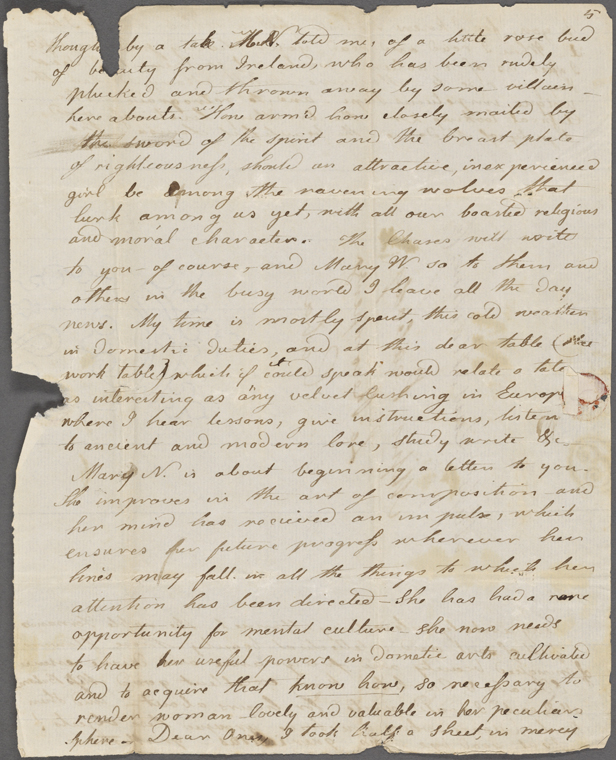 5
though by a tale Mr N. told me, of a little rose bud
of beauty from Ireland, who has been rudely
plucked and thrown away by some villain
hereabouts. How arm'd how closely mailed by
the sword of the spirit and the breast plate
of righteousness, should an attractive, inexperienced
girl be among the ravening wolves that
lurk among us yet, with all our boasted religious
and moral character. The Chases will write
to you of course, and Mary W so to them and
others in the busy world I leave all the day
news. My time is mostly spent, this cold weather
in domestic duties, and at this dear table (the
work table) which if it could speak would relate a tale
as interesting as any velvet cushing in Europ
where I hear lessons, give instructions, listen
to ancient and modern lore, study write &c
Mary N. is about beginning a letter to you.
She improves in the art of composition and
her mind has recieved an impulse, which
ensures her future progress wherever her
lines may fall. in all the things to which her
attention has been directed - She has had a rare
opportunity for mental culture - she now needs
to have her useful powers in dometic arts cultivated
and to acquire that know how, so necessary to
render woman lovely and valuable in her peculiar
sphere. Dear I took half a sheet in mercy